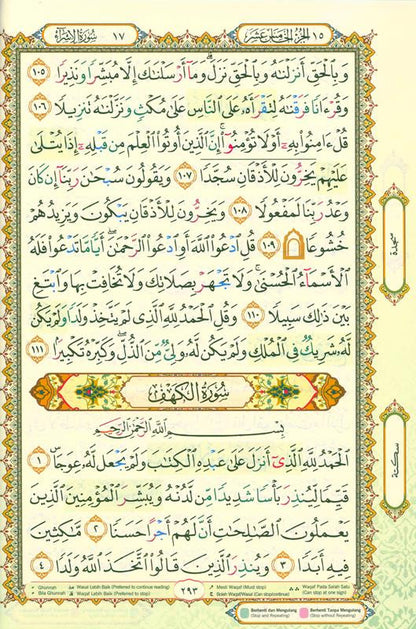 ١٥ الجزء الخامس عشر
١٧ سورة الإسراء
وَبِالْحَقِّ أَنْزَلْنَاهُ وَبِالْحَقِّ نَزَلَ وَمَا أَرْسَلْنَاكَ إِلَّا مُبَشِّرًا وَنَذِيرًا ١٠٥
وَقُرْءَانًا فَرَقْنَاهُ لِتَقْرَأَهُ عَلَى النَّاسِ عَلَى مُكْثٍ وَنَزَّلْنَاهُ تَنْزِيلًا ١٠٦
قُلْ ءَامِنُوا بِهِ أَوْ لَا تُؤْمِنُوا إِنَّ الَّذِينَ أُوتُوا الْعِلْمَ مِنْ قَبْلِهِ إِذَا يُتْلَى
عَلَيْهِمْ يَخِرُّونَ لِلْأَذْقَانِ سُجَّدًا ١٠٧ وَيَقُولُونَ سُبْحَٰنَ رَبِّنَا إِنْ كَانَ
وَعْدُ رَبِّنَا لَمَفْعُولًا ١٠٨ وَيَخِرُّونَ لِلْأَذْقَانِ يَبْكُونَ وَيَزِيدُهُمْ
خُشُوعًا ۩ ١٠٩ قُلِ ادْعُوا اللَّهَ أَوِ ادْعُوا الرَّحْمَٰنَ أَيًّا مَا تَدْعُوا فَلَهُ
الْأَسْمَاءُ الْحُسْنَى وَلَا تَجْهَرْ بِصَلَاتِكَ وَلَا تُخَافِتْ بِهَا وَابْتَغِ
بَيْنَ ذَٰلِكَ سَبِيلًا ١١٠ وَقُلِ الْحَمْدُ لِلَّهِ الَّذِي لَمْ يَتَّخِذْ وَلَدًا وَلَمْ يَكُنْ
لَهُ شَرِيكٌ فِي الْمُلْكِ وَلَمْ يَكُنْ لَهُ وَلِيٌّ مِنَ الذُّلِّ وَكَبِّرْهُ تَكْبِيرًا ١١١
سُورَةُ الْكَهْفِ
بِسْمِ اللَّهِ الرَّحْمَٰنِ الرَّحِيمِ
الْحَمْدُ لِلَّهِ الَّذِي أَنْزَلَ عَلَى عَبْدِهِ الْكِتَٰبَ وَلَمْ يَجْعَلْ لَهُ عِوَجًا ١
قَيِّمًا لِيُنْذِرَ بَأْسًا شَدِيدًا مِنْ لَدُنْهُ وَيُبَشِّرَ الْمُؤْمِنِينَ الَّذِينَ
يَعْمَلُونَ الصَّٰلِحَٰتِ أَنَّ لَهُمْ أَجْرًا حَسَنًا ٢ مَٰكِثِينَ
فِيهِ أَبَدًا ٣ وَيُنْذِرَ الَّذِينَ قَالُوا اتَّخَذَ اللَّهُ وَلَدًا ٤
سجدة
سكتة
٢٩٣
Ghunnah
Bila Ghunnah
Wakaf Lebih Baik (Preferred to continue reading)
Wakaf Lebih Baik (Preferred to stop)
Mesti Waqaf (Must stop)
Boleh Waqaf/Wasal (Can stop/continue)
Waqaf Pada Salah Satu (Can stop at one sign)
Berhenti dan Mengulang (Stop and Repeating)
Berhenti Tanpa Mengulang (Stop without Repeating)